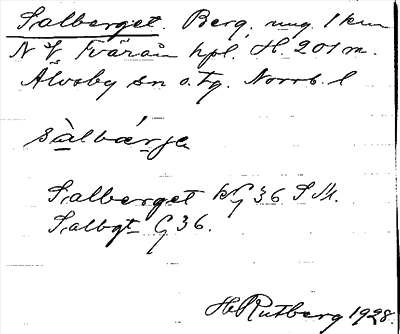 Salberget. Berg, ung. 1 km
N V Tvärån hpl. H. 201 m.
Älvsby sn o. tg. Norrb. l
sàlbárjə
Salberget bG 36 S M.
Salbgt G 36.
H Rutberg 1928.